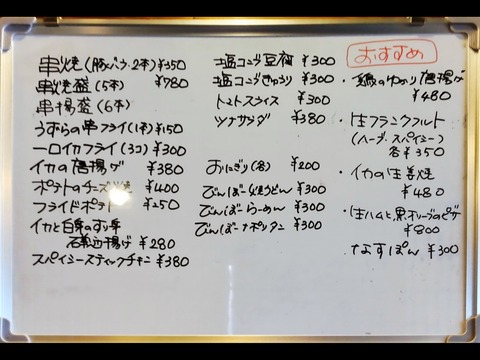 串焼(豚バラ・2本)¥350
串焼盛(5本) ¥780
串揚盛(6本)
うずらの串フライ(1本)¥150
一口イカフライ(3コ)¥300
イカの唐揚げ ¥380
ポテトのチーズ焼 ¥400
フライドポテト ¥250
イカと
揚げ ¥280
スパイシースティックチキン ¥380
塩コンブ豆腐 ¥300
塩コンブきゅうり ¥300
トマトスライス ¥300
ツナサラダ ¥380
おにぎり(各) ¥200
びんぼーうどん ¥300
びんぼーらーめん ¥300
びんぼーナポリタン ¥300
おすすめ
・鶏のゆかり唐揚げ
¥480
・生フランクフルト
(ハーブ・スパイシー)
各¥350
・イカの生姜焼
¥480
・生ハムと黒オリーブのピザ
¥800
なすぽん ¥300